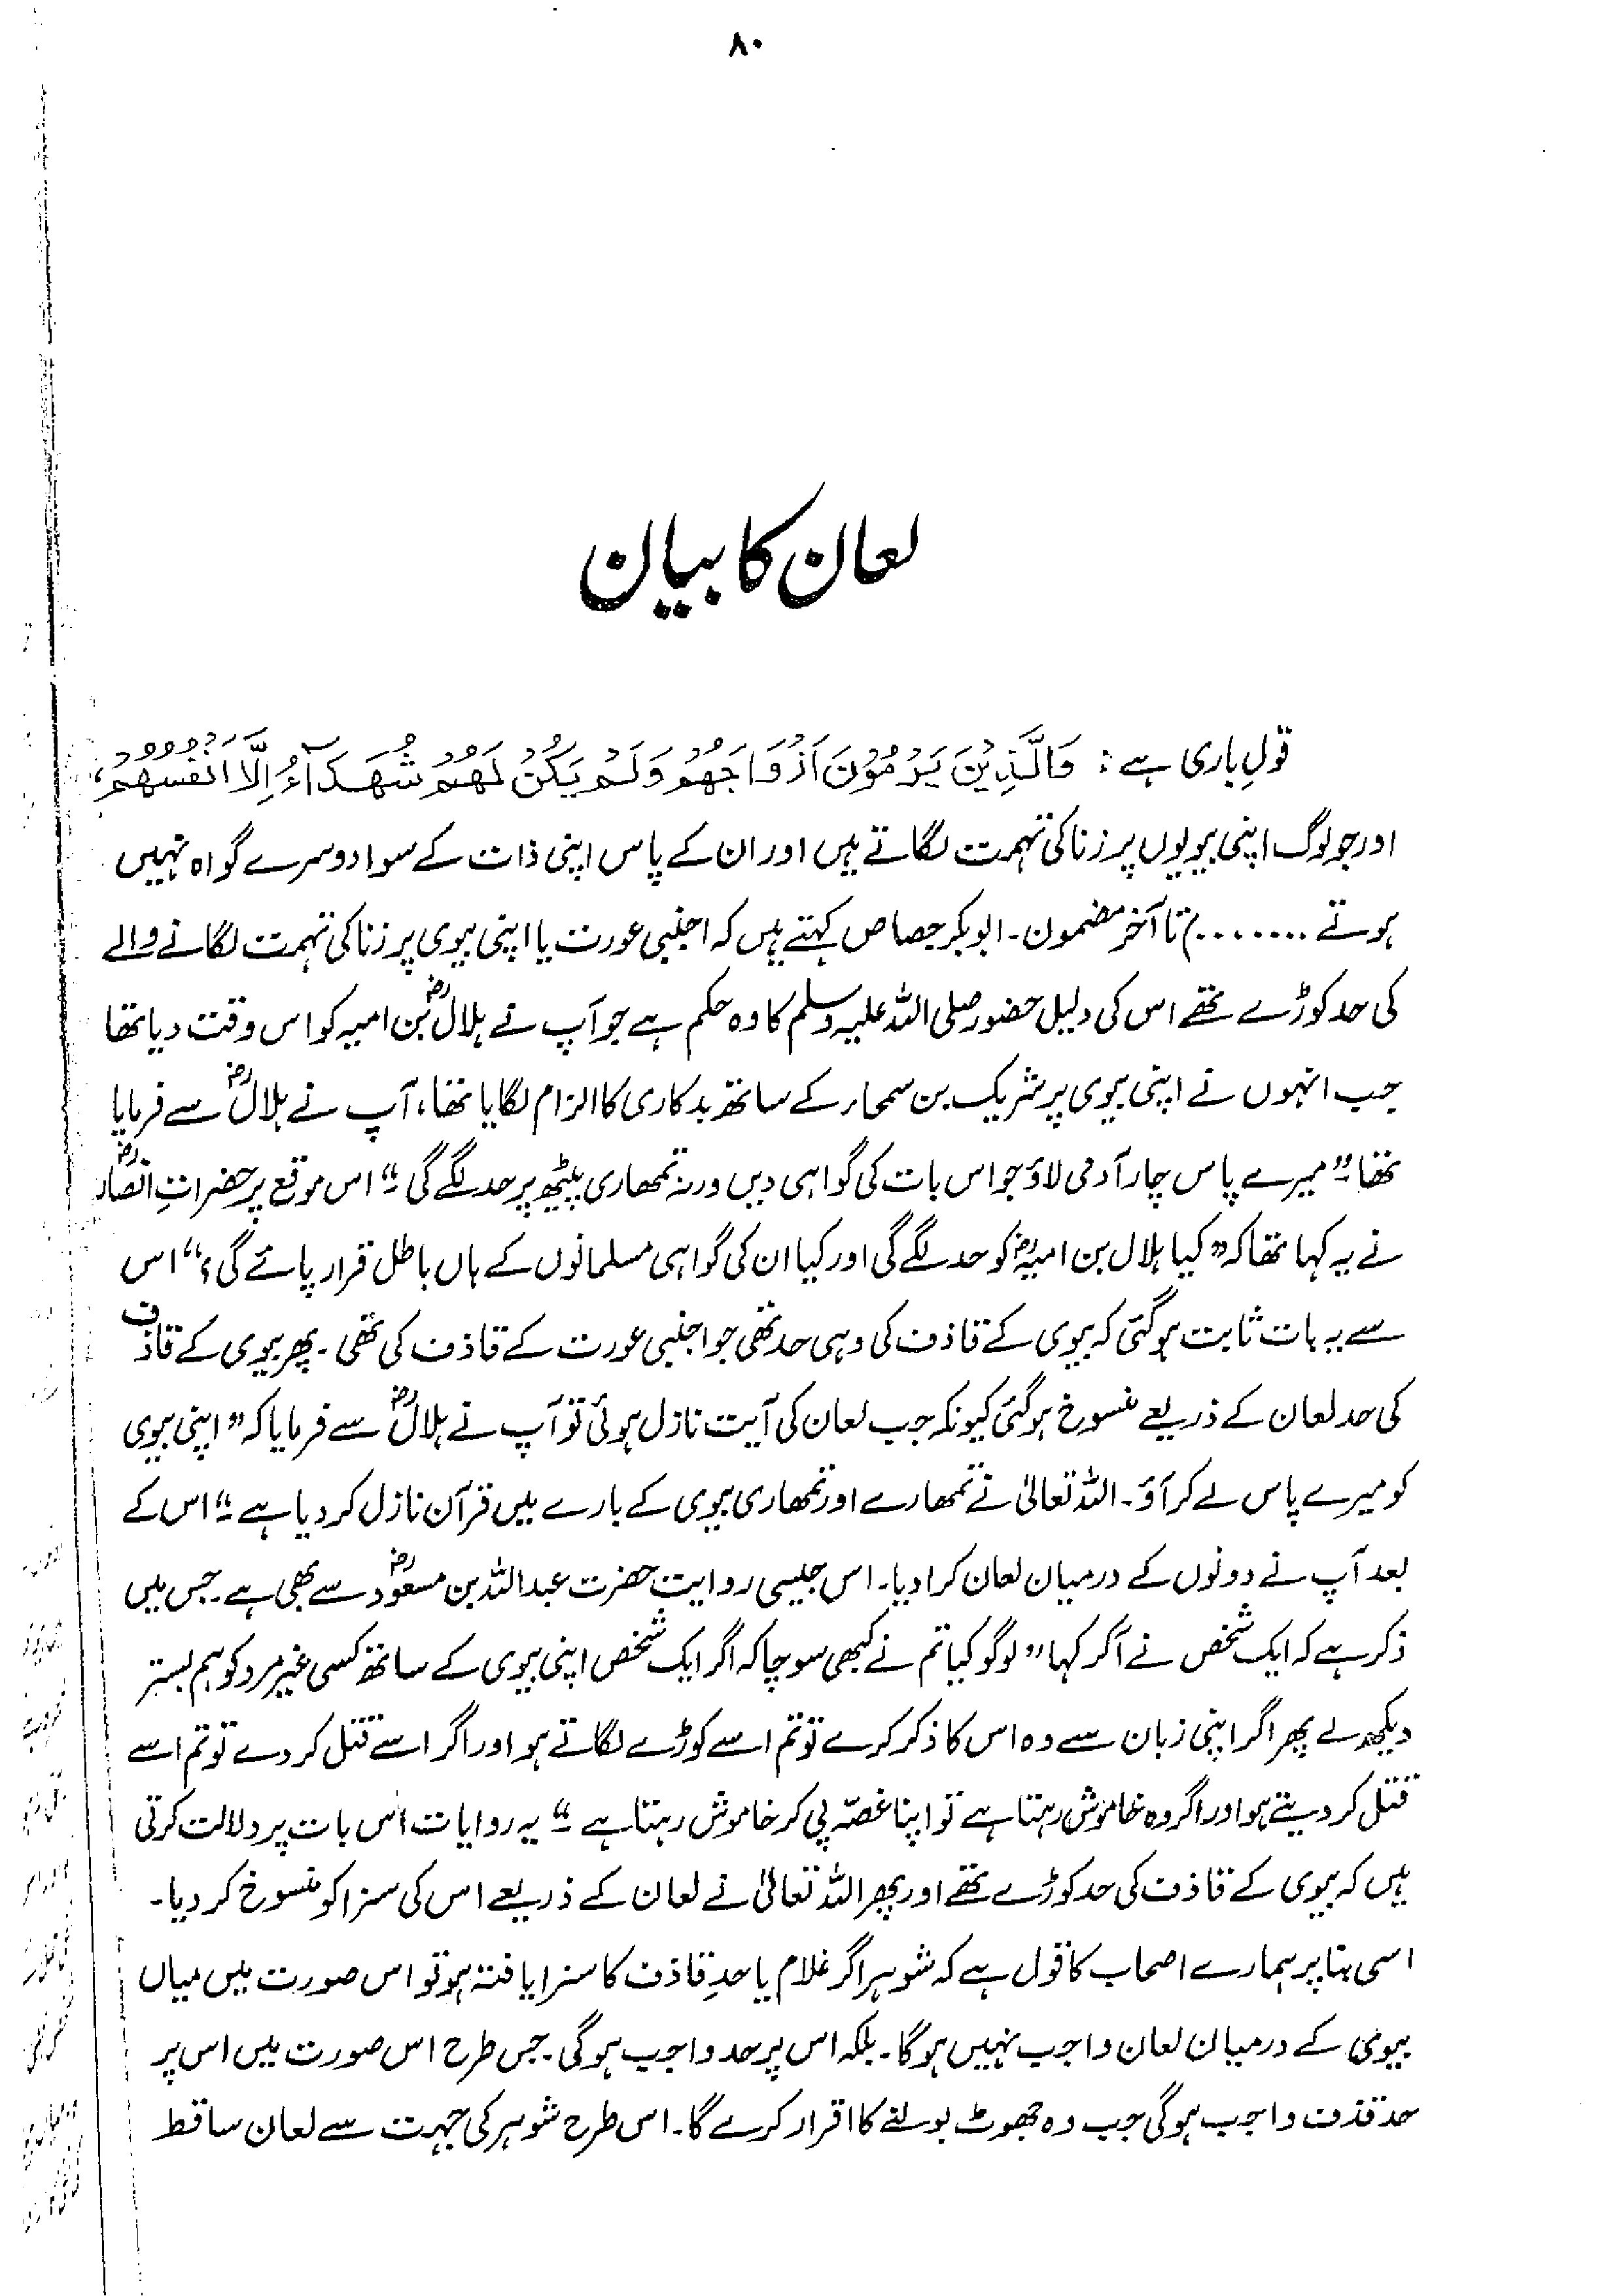 ۸۰
لعان کا بیان
قولِ باری ہے: وَالَّذِیْنَ یَرْمُوْنَ اَزْوَاجَهُمْ وَلَمْ یَکُنْ لَهُمْ شُهَدَآءُ اِلَّا اَنْفُسُهُمْ،
اور جو لوگ اپنی بیویوں پر زنا کی تہمت لگاتے ہیں اور ان کے پاس اپنی ذات کے سوا دوسرے گواہ نہیں
ہوتے ........) تا آخر مضمون۔ ابوبکر جصاص کہتے ہیں کہ اجنبی عورت یا اپنی بیوی پر زنا کی تہمت لگانے والے
کی حد کوڑے تھے اس کی دلیل حضور صلی اللہ علیہ وسلم کا وہ حکم ہے جو آپ نے ہلالؓ بن امیہ کو اس وقت دیا تھا
جب انہوں نے اپنی بیوی پر شریک بن سمحاء کے ساتھ بدکاری کا الزام لگایا تھا، آپ نے ہلالؓ سے فرمایا
تھا "میرے پاس چار آدمی لاؤ جو اس بات کی گواہی دیں ورنہ تمھاری پیٹھ پر حد لگے گی۔" اس موقع پر حضراتِ انصارؓ
نے یہ کہا تھا کہ "کیا ہلال بن امیہؓ کو حد لگے گی اور کیا ان کی گواہی مسلمانوں کے ہاں باطل قرار پائے گی؟" اس
سے یہ بات ثابت ہو گئی کہ بیوی کے قاذف کی وہی حد تھی جو اجنبی عورت کے قاذف کی تھی۔ پھر بیوی کے قاذف
کی حد لعان کے ذریعے منسوخ ہو گئی کیونکہ جب لعان کی آیت نازل ہوئی تو آپ نے ہلالؓ سے فرمایا کہ "اپنی بیوی
کو میرے پاس لے کر آؤ۔ اللہ تعالیٰ نے تمھارے اور تمھاری بیوی کے بارے میں قرآن نازل کر دیا ہے۔" اس کے
بعد آپ نے دونوں کے درمیان لعان کرا دیا۔ اس جیسی روایت حضرت عبداللہ بن مسعودؓ سے بھی ہے۔ جس میں
ذکر ہے کہ ایک شخص نے آ کر کہا "لوگو کیا تم نے کبھی سوچا کہ اگر ایک شخص اپنی بیوی کے ساتھ کسی غیر مرد کو ہم بستر
دیکھ لے پھر اگر اپنی زبان سے وہ اس کا ذکر کرے تو تم اسے کوڑے لگاتے ہو اور اگر اسے قتل کر دے تو تم اسے
قتل کر دیتے ہو اور اگر وہ خاموش رہتا ہے تو اپنا غصّہ پی کر خاموش رہتا ہے۔" یہ روایات اس بات پر دلالت کرتی
ہیں کہ بیوی کے قاذف کی حد کوڑے تھے اور پھر اللہ تعالیٰ نے لعان کے ذریعے اس کی سزا کو منسوخ کر دیا۔
اسی بنا پر ہمارے اصحاب کا قول ہے کہ شوہر اگر غلام یا حدِ قاذف کا سزا یافتہ ہو تو اس صورت میں میاں
بیوی کے درمیان لعان واجب نہیں ہو گا۔ بلکہ اس پر حد واجب ہو گی۔ جس طرح اس صورت میں اس پر
حد قذف واجب ہو گی جب وہ جھوٹ بولنے کا اقرار کرے گا۔ اس طرح شوہر کی جہت سے لعان ساقط